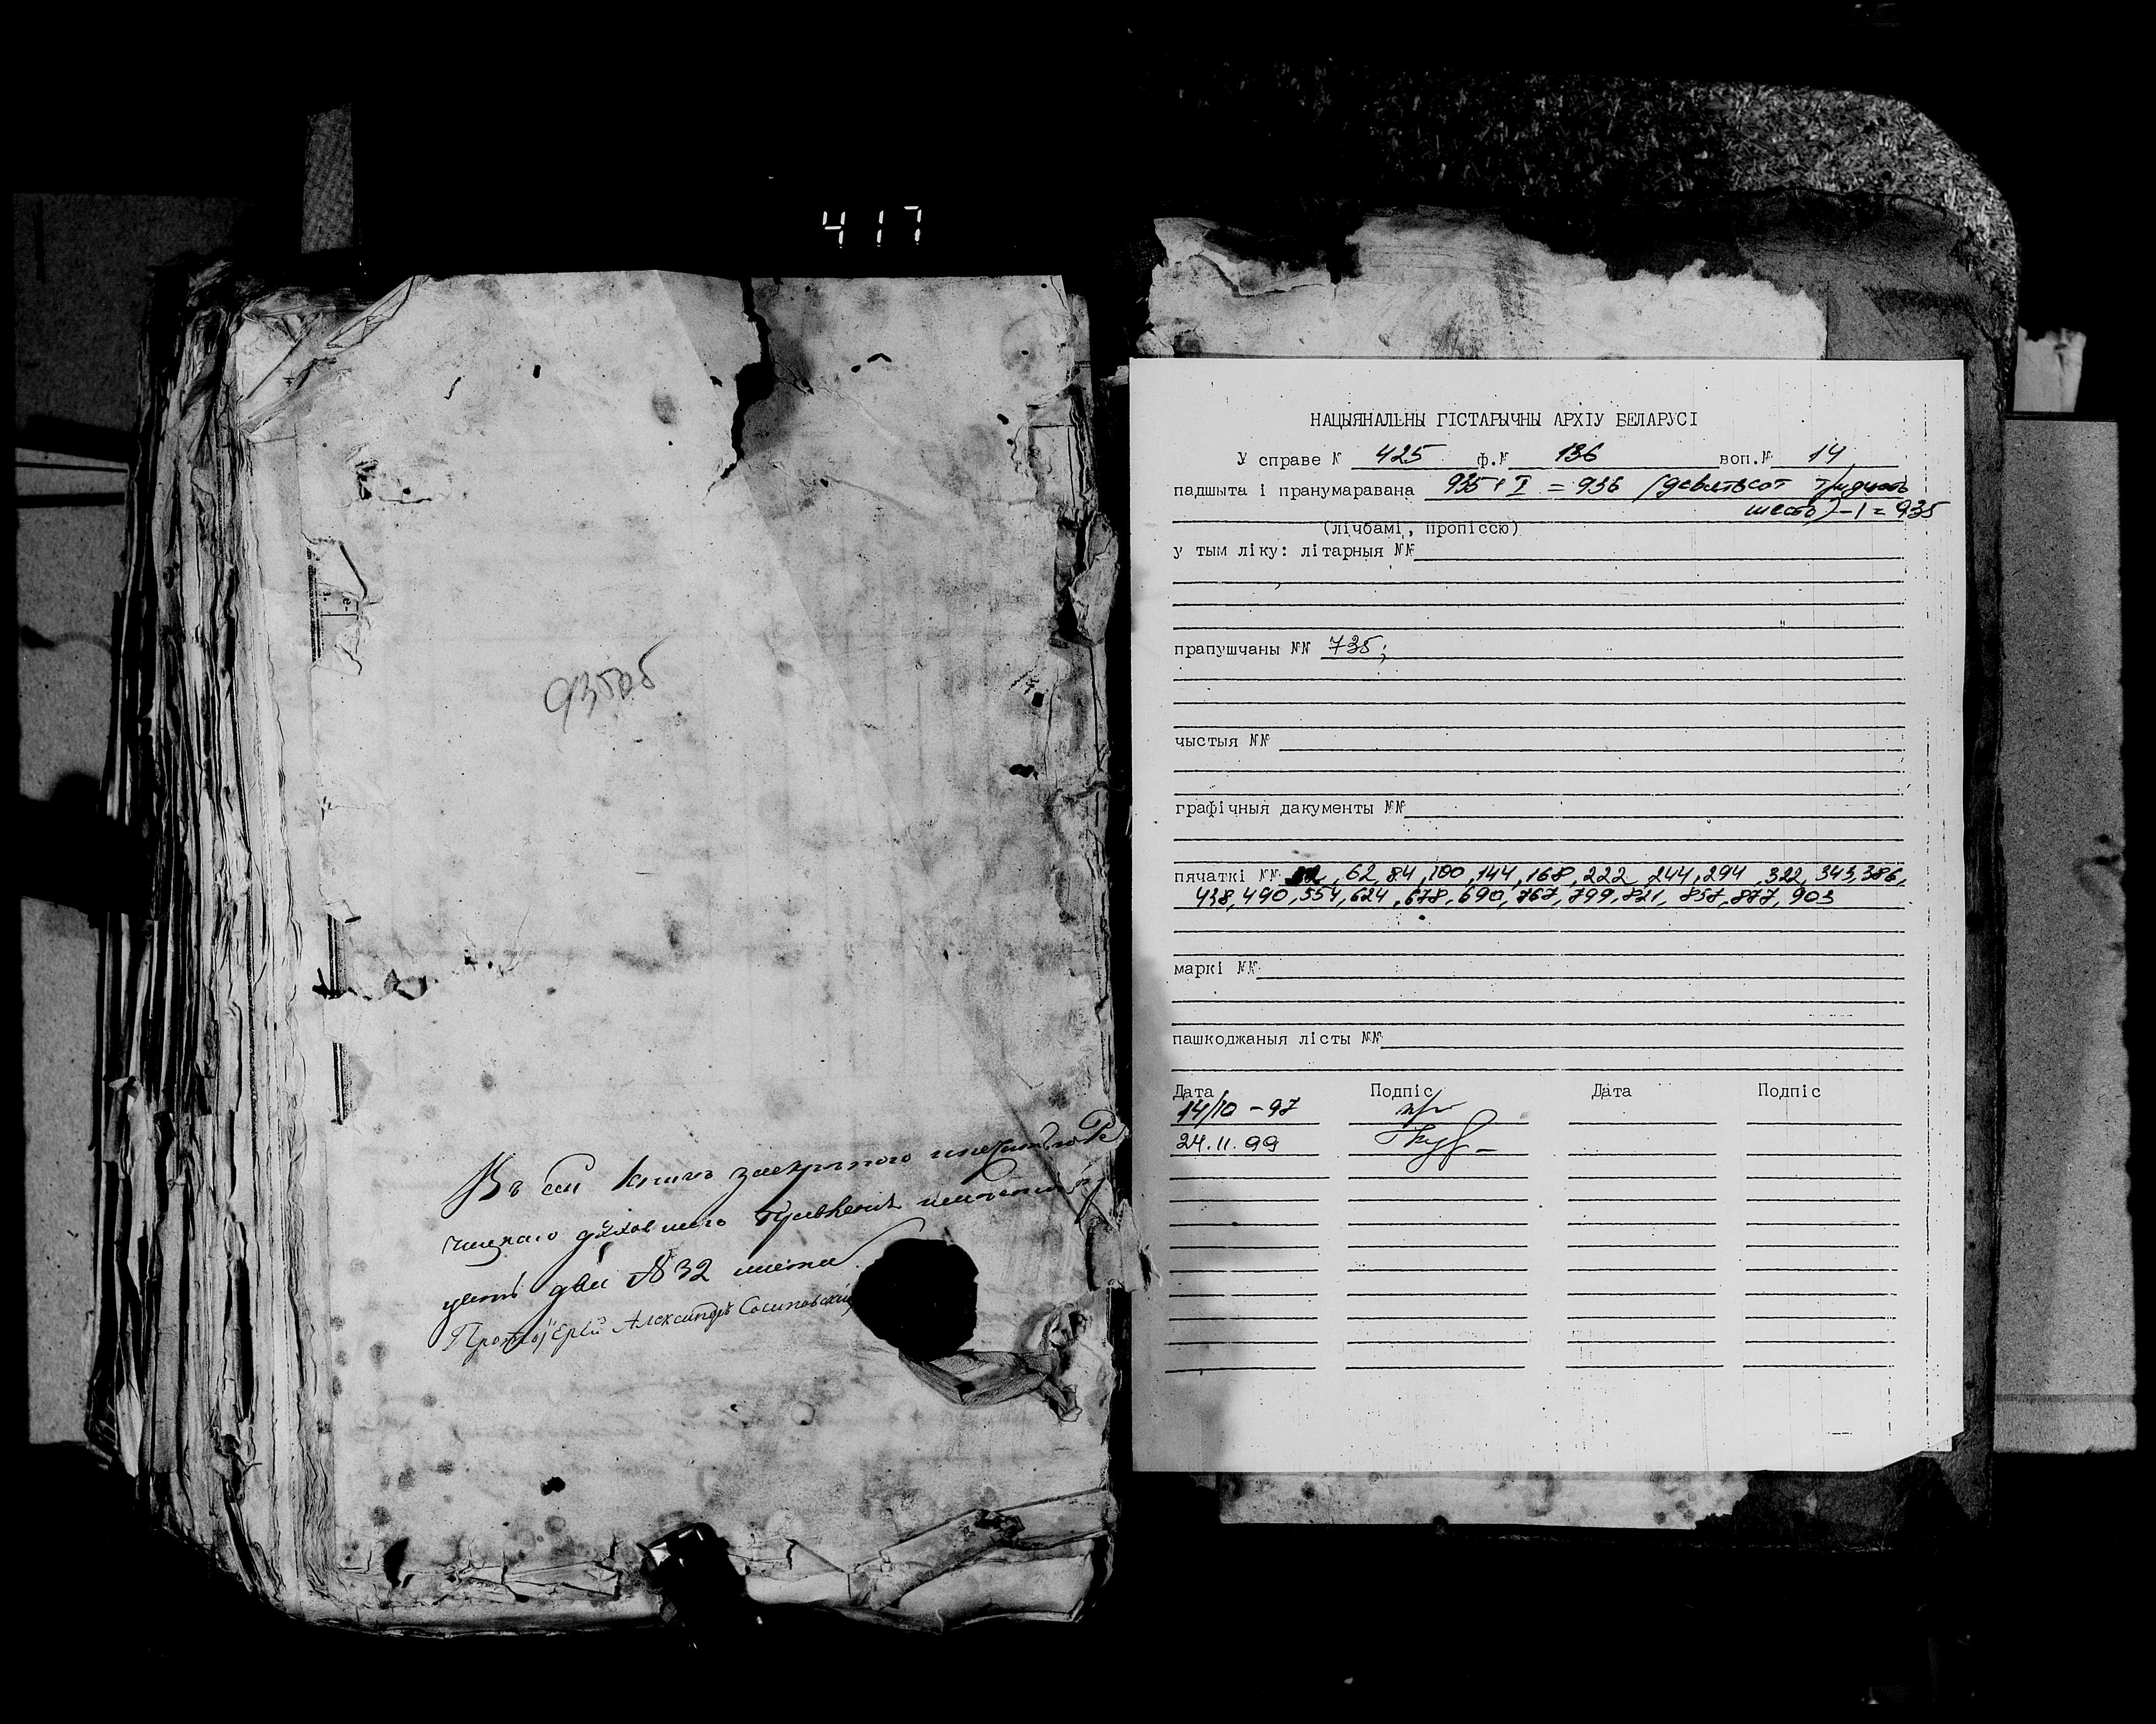 417
935об
Въ сей книгѣ закрытого печатью Ре
чицкаго духовнаго Правленія
два № 32 листа
Протоіерей Александръ Сосиновскій
НАЦЫЯНАЛЬНЫ ГІСТАРЫЧНЫ АРХІУ БЕЛАРУСІ
У справе № 425 ф.№ 136 воп.№ 14
падшыта і пранумаравана 935+I = 936 (девятьсот тридцать
шесть) -1 = 935
(лічбамі, пропіссю)
у тым ліку: літарныя №№
прапушчаны №№ 735;
чыстыя №№
графічныя дакументы №№
пячаткі №№ 32, 62, 84, 100, 144, 168, 222, 244, 294, 322, 343, 386,
438, 490, 554, 624, 678, 690, 767, 799, 821, 857, 877, 903
маркі №№
пашкоджаныя лісты №№
Дата Подпіс Дата Подпіс
14/10 - 97
24.11.99